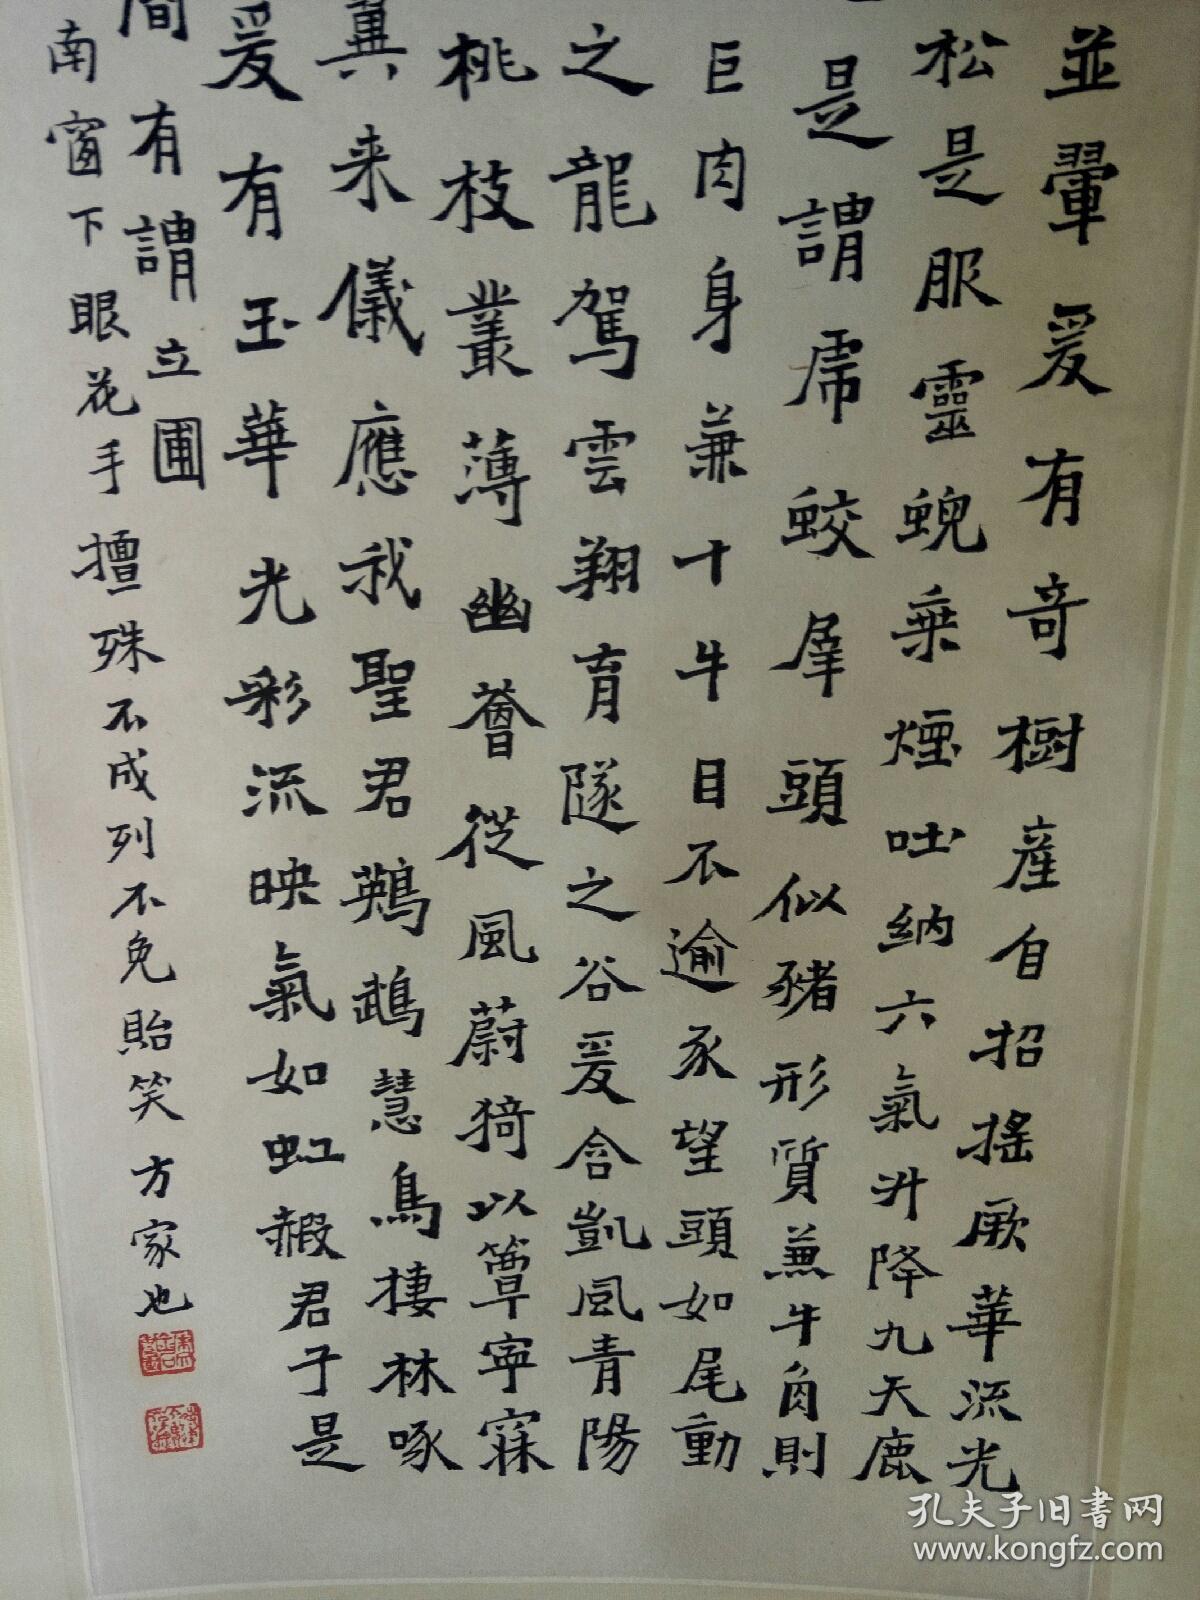 並翬爰有奇樹産自招搖厥華流光
松是服靈蜺乗煙吐納六氣升降九天鹿
是謂虒蛟犀頭似豬形質兼牛角則
巨肉身兼十牛目不逾豕望頭如尾動
之龍駕雲翔育隧之谷爰含凱風青陽
桃枝叢薄幽薈從風蔚猗以簟寧寐
翼来儀應我聖君鸚鵡慧鳥棲林啄
爰有玉華光彩流映氣如虹赮君子是
間有謂立圃
南窗下眼花手擅殊不成列不免貽笑方家也
孔夫子旧書网
www.kongfz.com